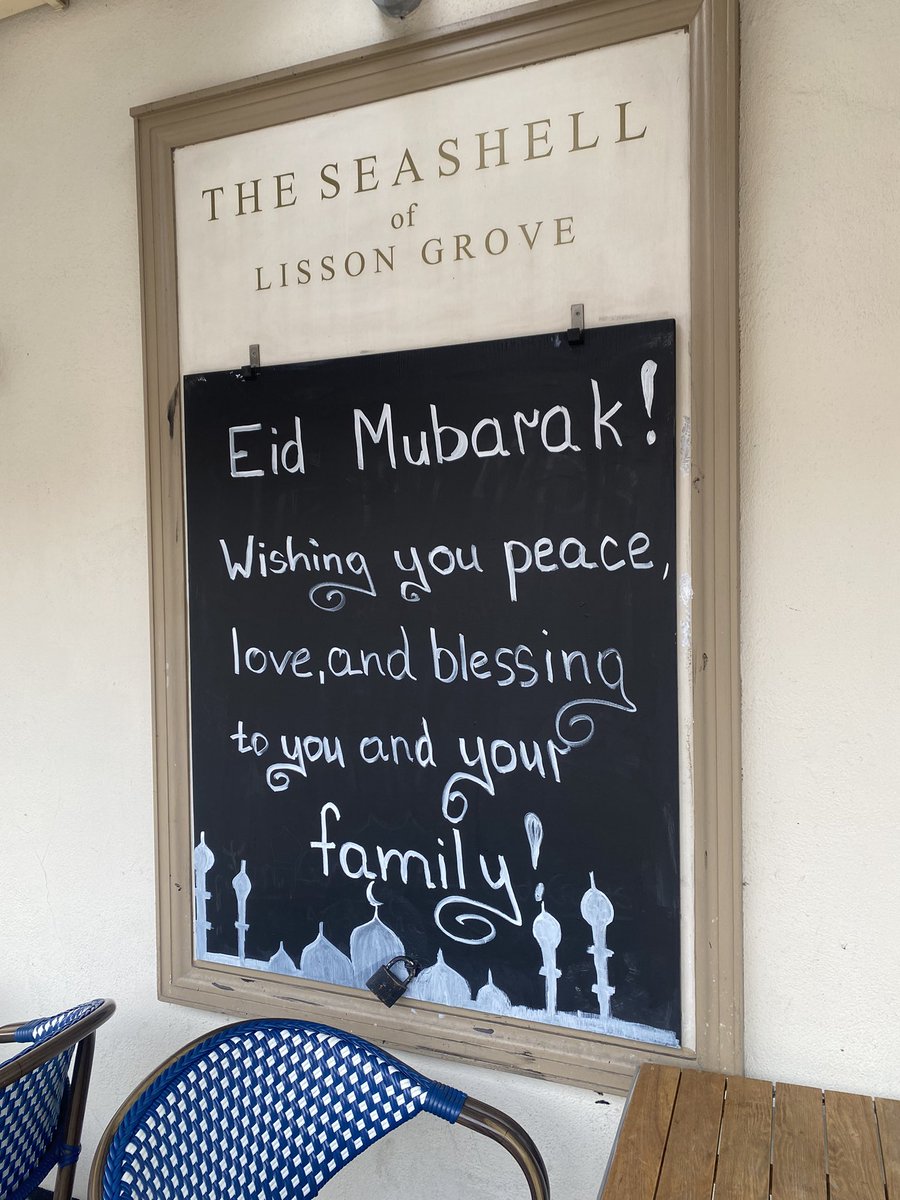 THE SEASHELL
of
LISSON GROVE
Eid Mubarak!
Wishing you peace,
love, and blessing
to you and your
family!